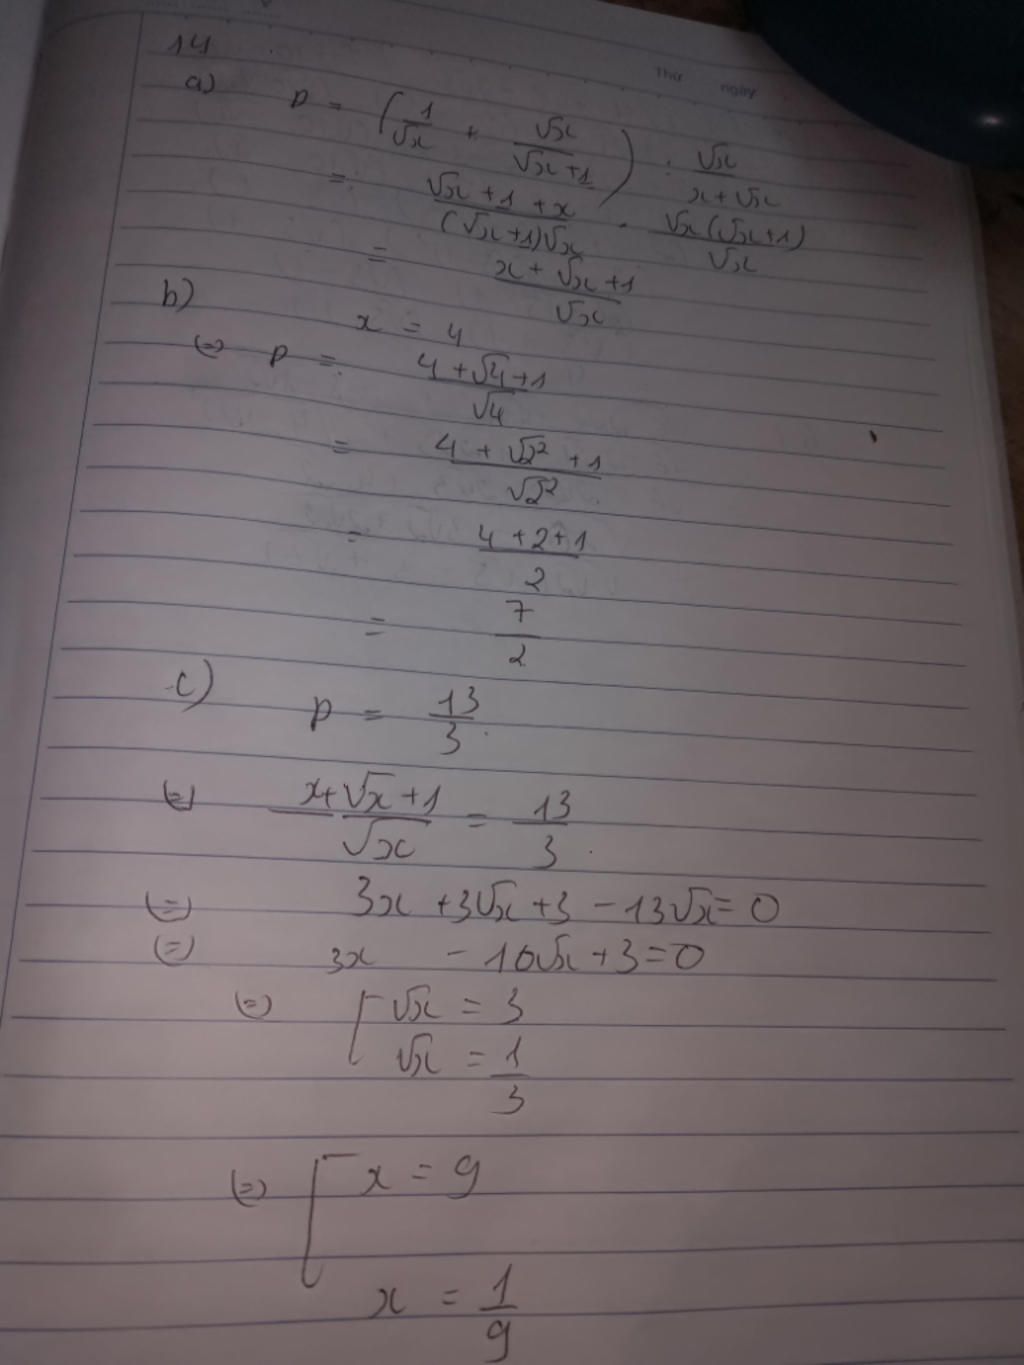 Thứ ngày
14
a) P = (1/√x + √x/(√x+1)) : √x/(x+√x)
= (√x+1+x)/((√x+1)√x) . √x(√x+1)/√x
= (x+√x+1)/√x
b) x = 4
(=) P = (4+√4+1)/√4
= (4+√2²+1)/√2²
= (4+2+1)/2
= 7/2
c) P = 13/3
(=) (x+√x+1)/√x = 13/3
(=) 3x + 3√x + 3 - 13√x = 0
(=) 3x - 10√x + 3 = 0
(=) [ √x = 3
√x = 1/3
(=) [ x = 9
x = 1/9